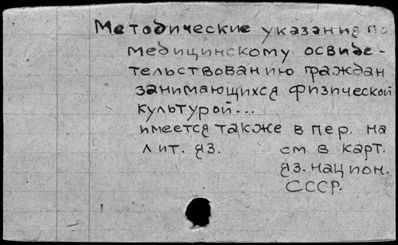 Методические указания по
медицинскому освиде-
тельствованию граждан
занимающихся физической
культурой...
имеется также в пер. на
лит. яз. см в карт.
яз. национ.
СССР.